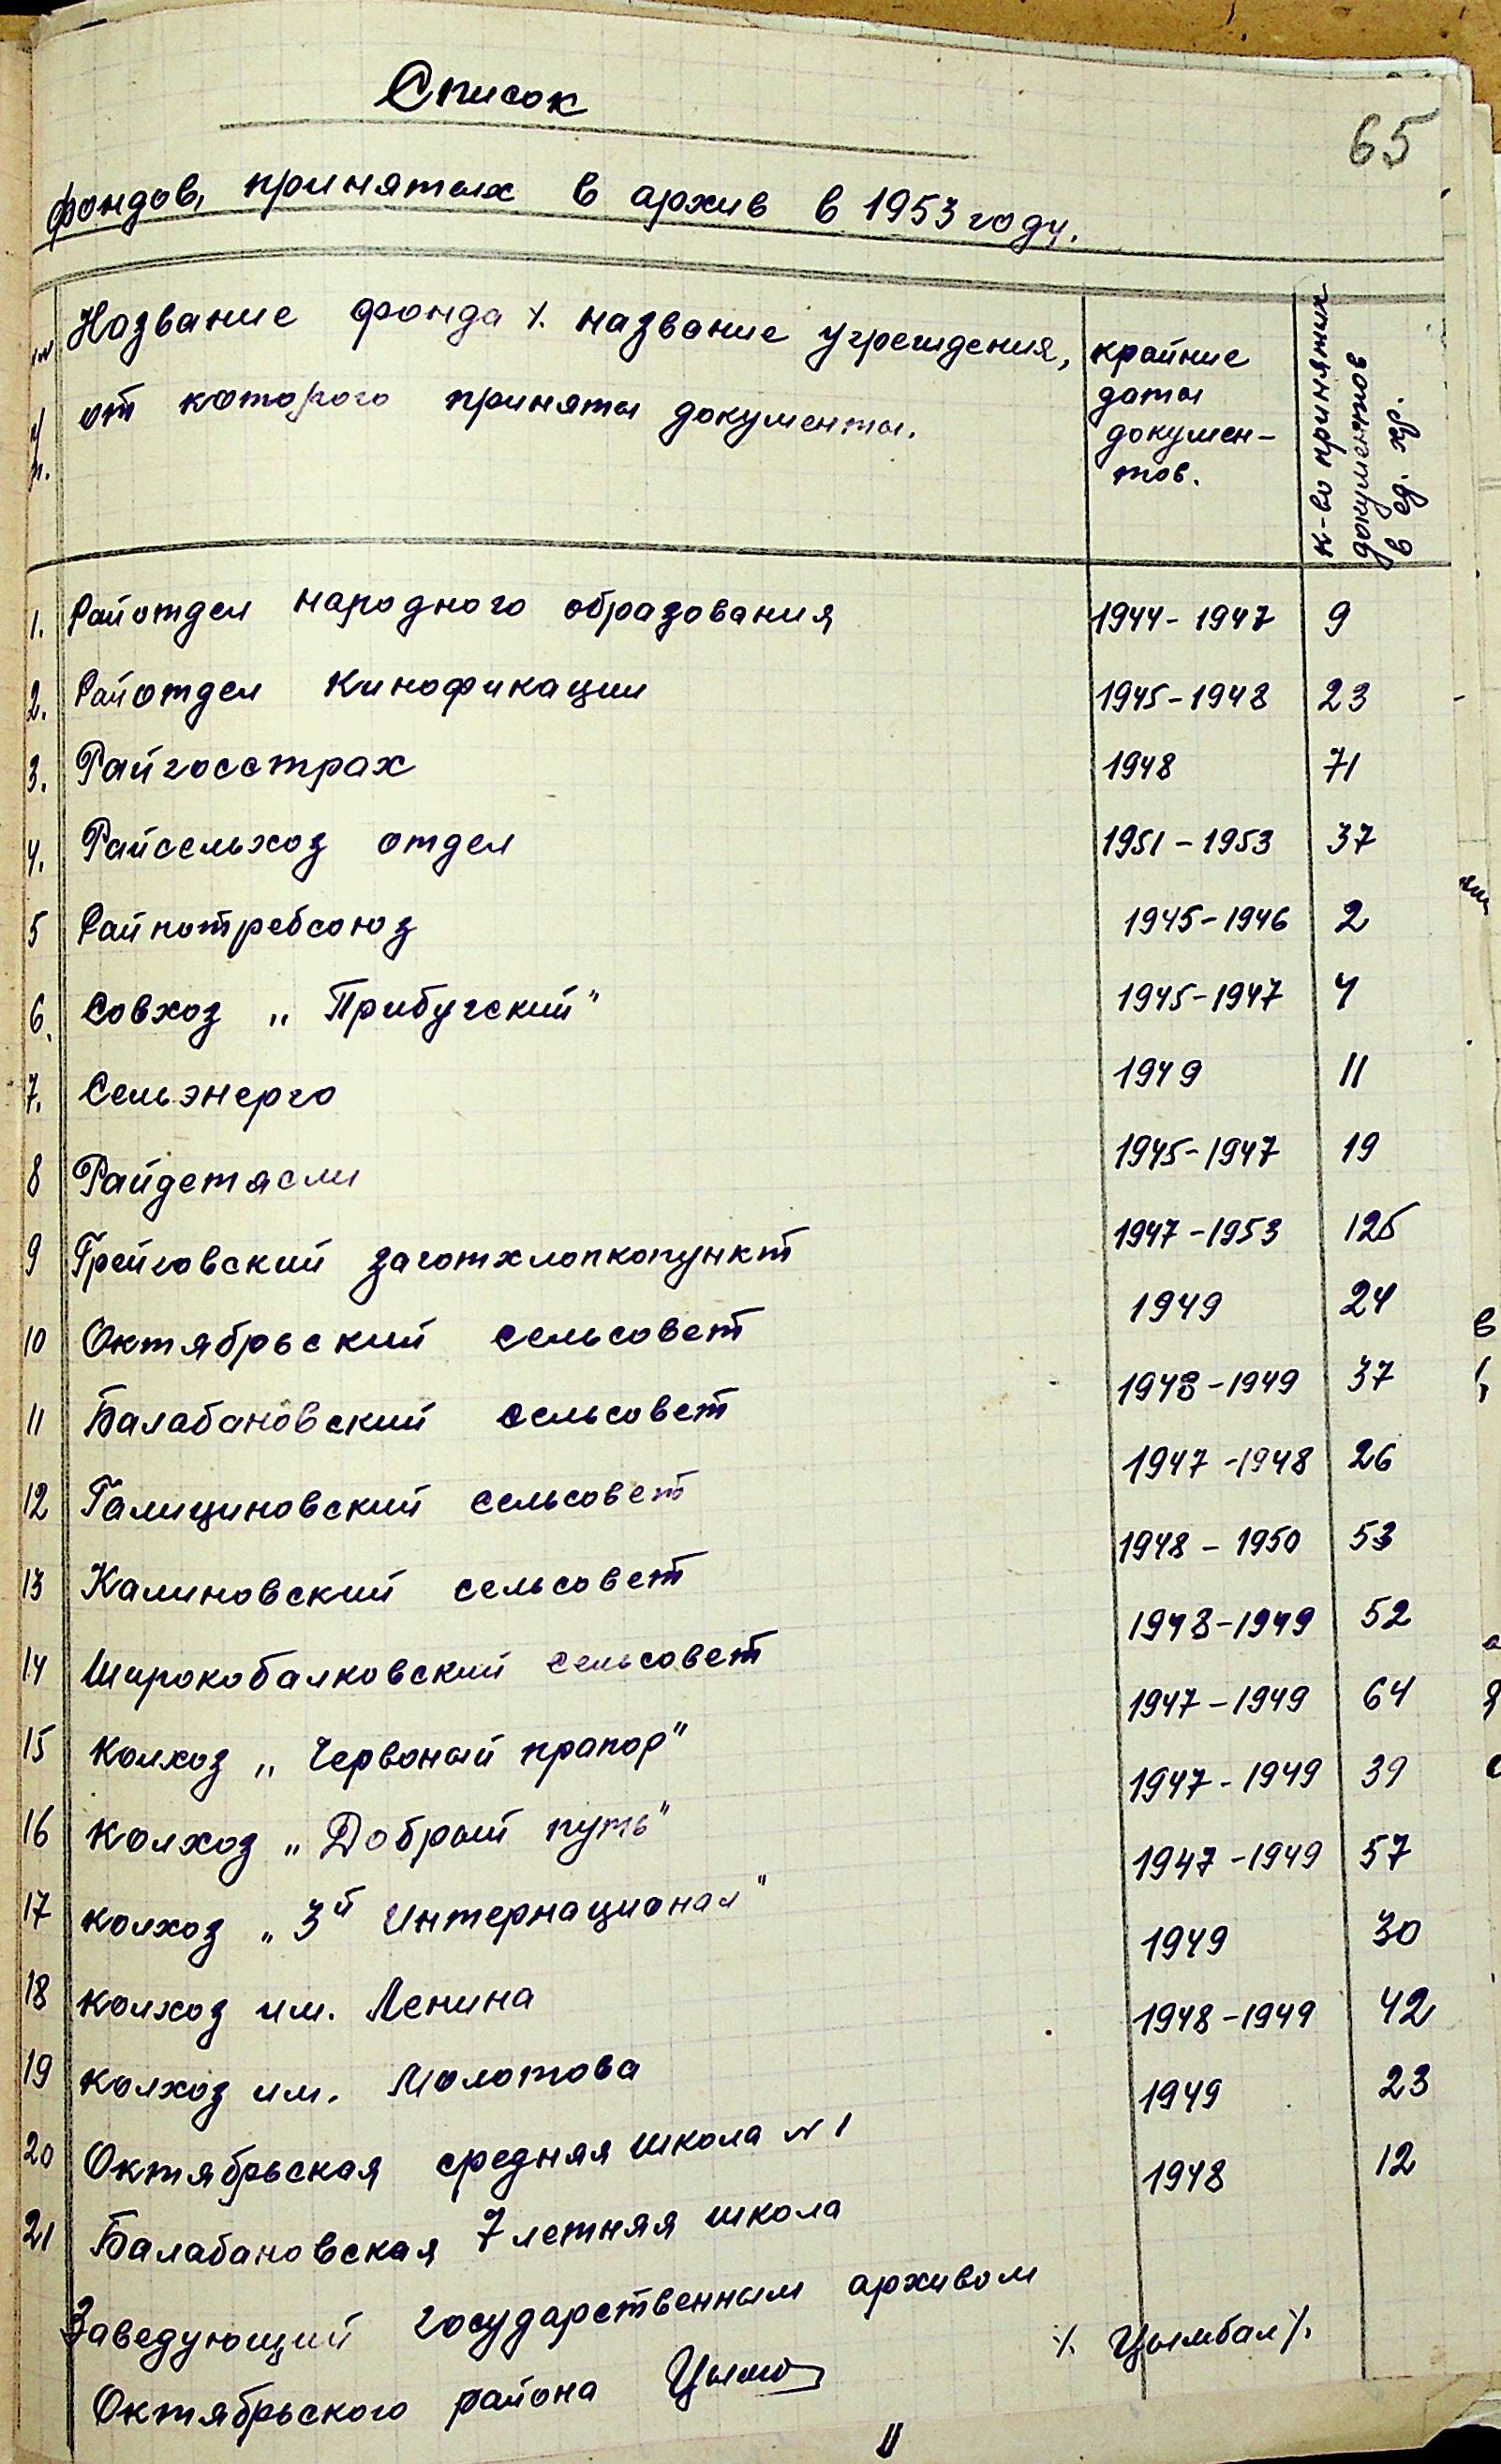 65
Список
фондов, принятых в архив в 1953 году.
№№ п/п. Название фонда /. название учреждения, от которого приняты документы.
крайние
даты
докумен-
тов.
к-во принятых
документов
в ед. хр.
1. Райотдел народного образования 1944-1947 9
2. Райотдел Кинофикации 1945-1948 23
3. Райгосстрах 1948 71
4. Райсельхоз отдел 1951-1953 37
5 Райпотребсоюз 1945-1946 2
6. Совхоз „Прибугский" 1945-1947 4
7. Сельэнерго 1949 11
8 Райдетясли 1945-1947 19
9 Грейговский заготхлопкопункт 1947-1953 125
10 Октябрьский сельсовет 1949 24
11 Балабановский сельсовет 1948-1949 37
12 Галициновский сельсовет 1947-1948 26
13 Калиновский сельсовет 1948-1950 53
14 Широкобалковский сельсовет 1948-1949 52
15 Колхоз „Червоный прапор" 1947-1949 64
16 Колхоз „Добрый путь" 1947-1949 39
17 колхоз „3й Интернационал" 1947-1949 57
18 колхоз им. Ленина 1949 30
19 колхоз им. Молотова 1948-1949 42
20 Октябрьская средняя школа №1 1949 23
21 Балабановская 7 летняя школа 1948 12
Заведующий государственным архивом
Октябрьского района /. Цымбал /.